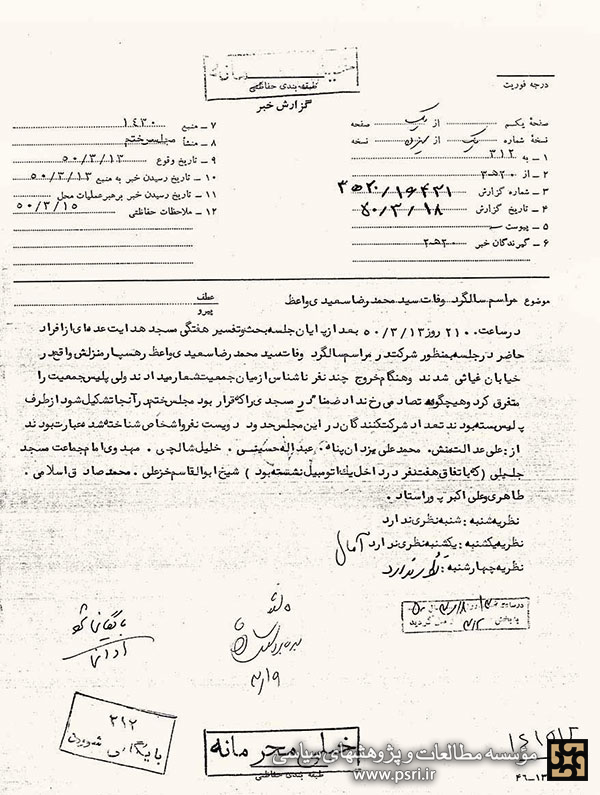 درجه فوریت
طبقه‌بندی حفاظتی
گزارش خبر
صفحه یکم از یک صفحه
نسخه شماره یک از نسخه
۱ ــ به ۳۱۲
۲ ــ از ۲۰ ه ۳
۳ ــ شماره گزارش ۲۰/۱۶۴۲۱ ه ۳
۴ ــ تاریخ گزارش ۵۰/۳/۱۸
۵ ــ پیوست
۶ ــ گیرندگان خبر ۲۰ ه ۳
۷ ــ منبع ۱۴۳۰
۸ ــ منشأ مجلس ختم
۹ ــ تاریخ وقوع ۵۰/۳/۱۳
۱۰ ــ تاریخ رسیدن خبر به منبع ۵۰/۳/۱۳
۱۱ ــ تاریخ رسیدن خبر برهبر عملیات محل ۵۰/۳/۱۵
۱۲ ــ ملاحظات حفاظتی
موضوع مراسم سالگرد وفات سید محمد رضا سعیدی واعظ
عطف
پیرو
در ساعت ۲۱۰ روز ۵۰/۳/۱۳ بعد از پایان جلسه بحث و تفسیر هفتگی مسجد هدایت عده‌ای از افراد
حاضر در جلسه بمنظور شرکت در مراسم سالگرد وفات سید محمد رضا سعیدی واعظ رهسپار منزلش واقع در
خیابان غیاثی شدند وهنگام خروج چند نفر ناشناس از میان جمعیت شعار میدادند ولی پلیس جمعیت را
متفرق کرد وهیچگونه تصادمی رخ نداد ضمنا" درب مسجدی را که قرار بود مجلس ختم در آنجا تشکیل شود از طرف
پلیس بسته بودند تعداد شرکت کنندگان در این مجلس حدود دویست نفر و اشخاص شناخته شده عبارت بودند
از : علی عدالت منش . محمد علی یزدان پناه . عبدالله حسینی . خلیل شالچی . مهدوی امام جماعت مسجد
جلیلی (که با تفاق هفت نفر در داخل یک اتومبیل نشسته بود) شیخ ابوالقاسم خزعلی . محمد صادق اسلامی .
طاهری و علی اکبر پور استاد .
نظریه شنبه : شنبه نظری ندارد
نظریه یکشنبه : یکشنبه نظری ندارد آمال
نظریه چهارشنبه : نظری ندارد
بایگانی شود
۳/۱۹
۲۱۲
بایگانی شود
خیلی محرمانه
طبقه بندی حفاظتی
مؤسسه مطالعات و پژوهشهای سیاسی
www.psri.ir